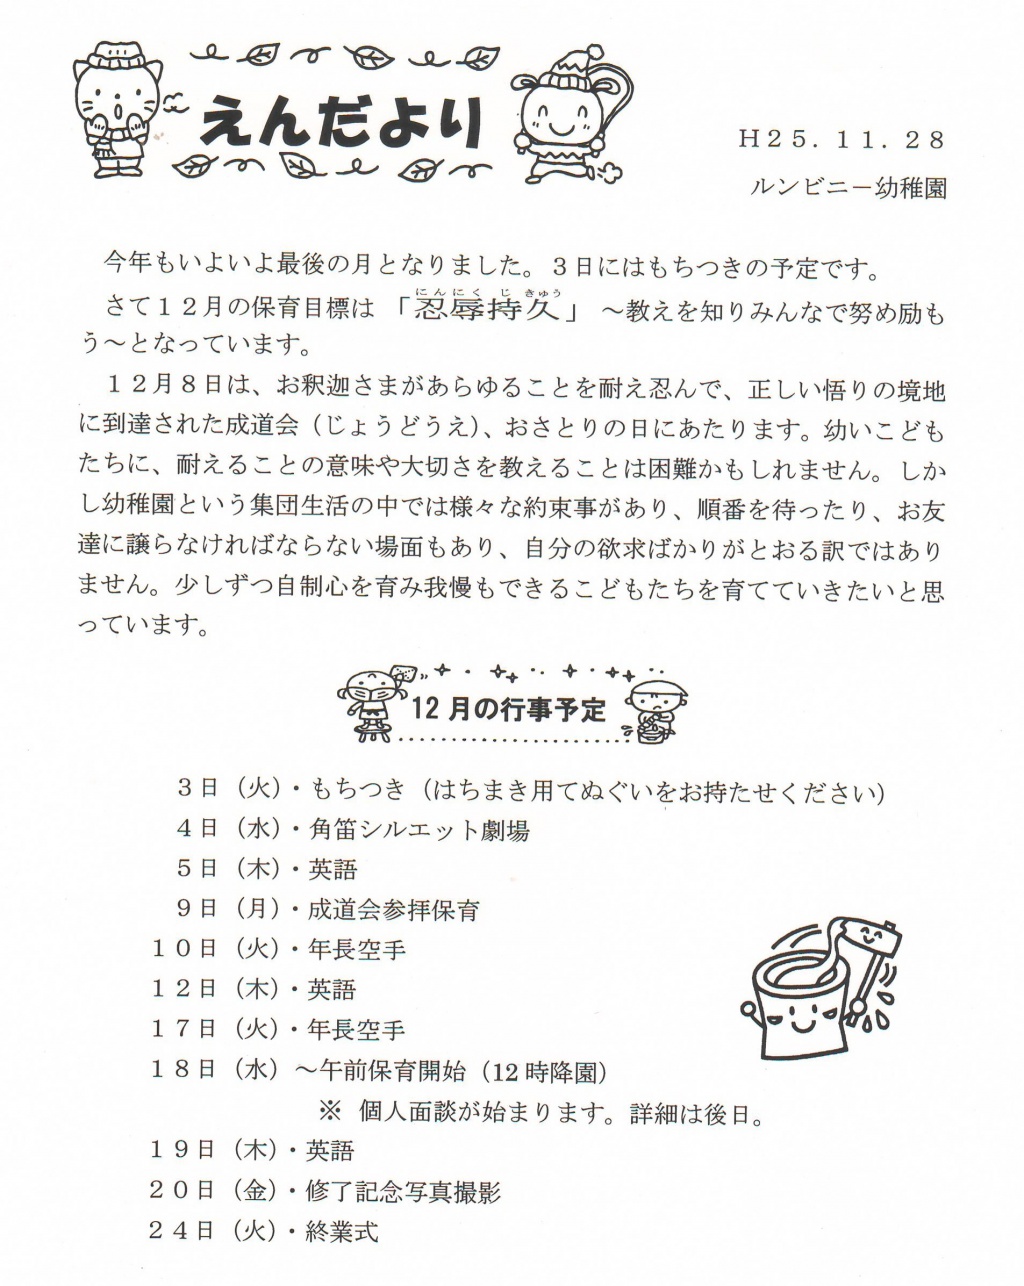 えんだより
H25.11.28
ルンビニー幼稚園
今年もいよいよ最後の月となりました。3日にはもちつきの予定です。
さて12月の保育目標は「忍辱持久」～教えを知りみんなで努め励も
にんにくじきゅう
う～となっています。
12月8日は、お釈迦さまがあらゆることを耐え忍んで、正しい悟りの境地
に到達された成道会（じょうどうえ）、おさとりの日にあたります。幼いこども
たちに、耐えることの意味や大切さを教えることは困難かもしれません。しか
し幼稚園という集団生活の中では様々な約束事があり、順番を待ったり、お友
達に譲らなければならない場面もあり、自分の欲求ばかりがとおる訳ではあり
ません。少しずつ自制心を育み我慢もできるこどもたちを育てていきたいと思
っています。
12月の行事予定
3日（火）・もちつき（はちまき用てぬぐいをお持たせください）
4日（水）・角笛シルエット劇場
5日（木）・英語
9日（月）・成道会参拝保育
10日（火）・年長空手
12日（木）・英語
17日（火）・年長空手
18日（水）～午前保育開始（12時降園）
※ 個人面談が始まります。詳細は後日。
19日（木）・英語
20日（金）・修了記念写真撮影
24日（火）・終業式